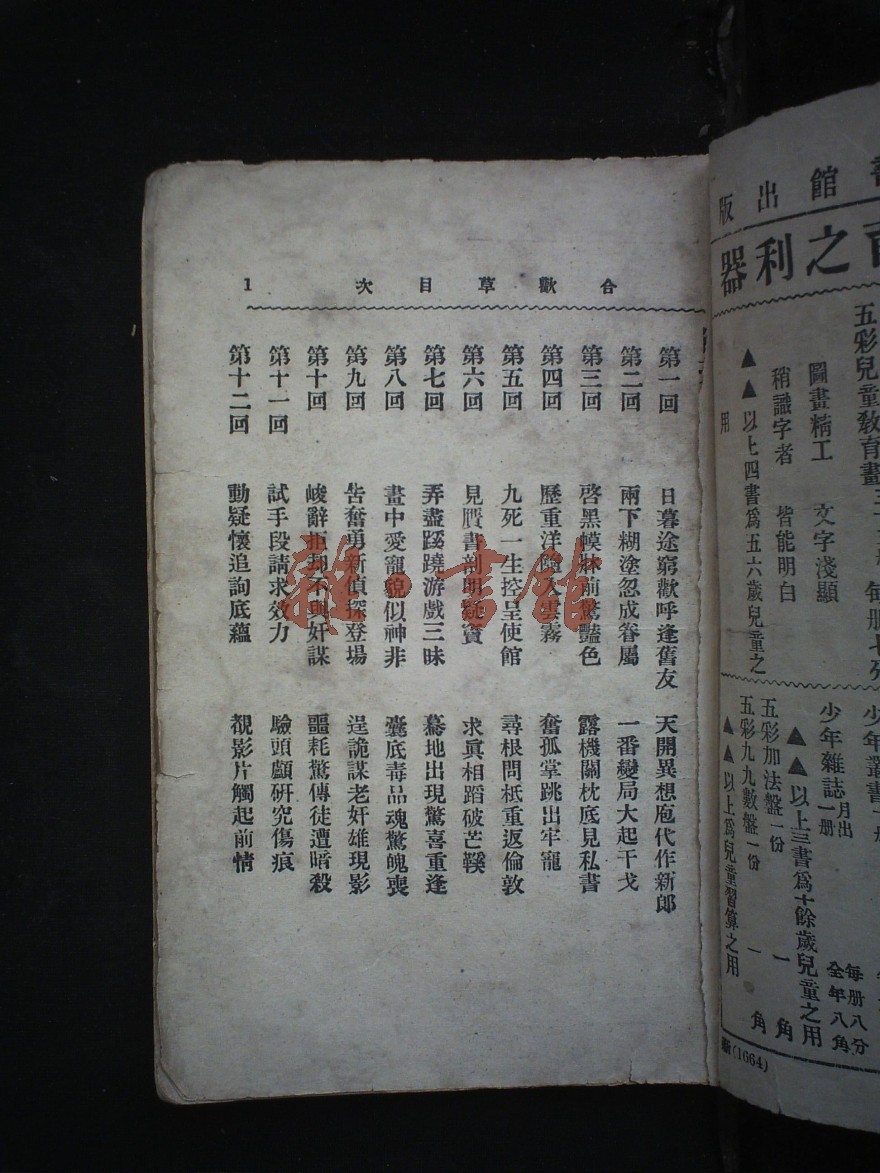 合歡草目次 1
第一回 日暮途窮歡呼逢舊友 天開異想庖代作新郎
第二回 兩下糊塗忽成眷屬 一番變局大起干戈
第三回 啓黑幙牀前驚豔色 露機關枕底見私書
第四回 歷重洋墮入雲霧 奮孤掌跳出牢寵
第五回 九死一生控呈使館 尋根問柢重返倫敦
第六回 見贋書剖明疑竇 求眞相蹈破芒鞵
第七回 弄盡蹊蹺游戲三昧 驀地出現驚喜重逢
第八回 畫中愛寵貌似神非 囊底毒品魂驚魄喪
第九回 告奮勇新偵探登場 逞詭謀老奸雄現影
第十回 峻辭拒却不與奸謀 噩耗驚傳徒遭暗殺
第十一回 試手段請求效力 驗頭顱硏究傷痕
第十二回 動疑懷追詢底蘊 覩影片觸起前情
雜·書館
書館出版
之利器
五彩兒童教育畫
每册七
圖畫精工 文字淺顯
稍識字者 皆能明白
▲▲以上四書爲五六歲兒童之用
少年叢書
少年雜誌 月出一册 每册八分 全年八角
▲▲以上三書爲十餘歲兒童之用
五彩加法盤一份 一角
五彩九九數盤一份 一角
▲▲以上爲兒童習算之用
(1664)